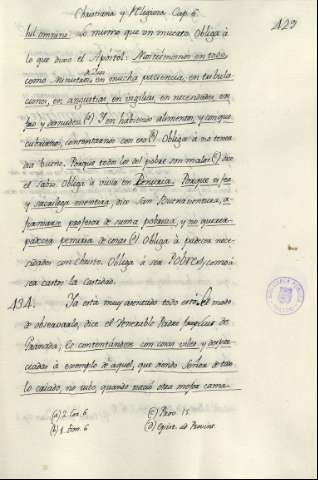 Christiana y Religiosa Cap. 6.
429
hil omnino. Lo mismo que un muerto. Obliga à
lo que dixo el Apostol: Mostrémonos en todo
como Ministros de Dios en mucha paciencia, en tribula
ciones, en angustias, en vigilias, en necesidades, en
frio, y desnudez (a) Y en habiendo alimentos, y con que
cubrirnos, contentarnos con eso (b) Obliga à no tener
dia bueno. Porque todos los del pobre son malos (c) dice
el Sabio. Obliga à vivir en Penuria. Porque es fea
y sacrilega mentira, dice San Buenaventura, a
firmarse profesor de suma pobreza, y no querer
padecer penuria de cosas (d) Obliga à padecer nece-
sidades con Christo. Obliga à ser POBRES, como à
ser castos, la castidad.
434. Ya està muy asentado todo esto. El modo
de observarlo, dice el Venerable Padre
Granada, es contentandose con cosas viles, y despre
ciadas à exemplo de aquel, que siendo Señor de to
lo criado, no tubo, quando nació otra mejor cama
(a) 2. Cor. 6
(b) 1. Tim. 6
(c) Prov. 15
(d)